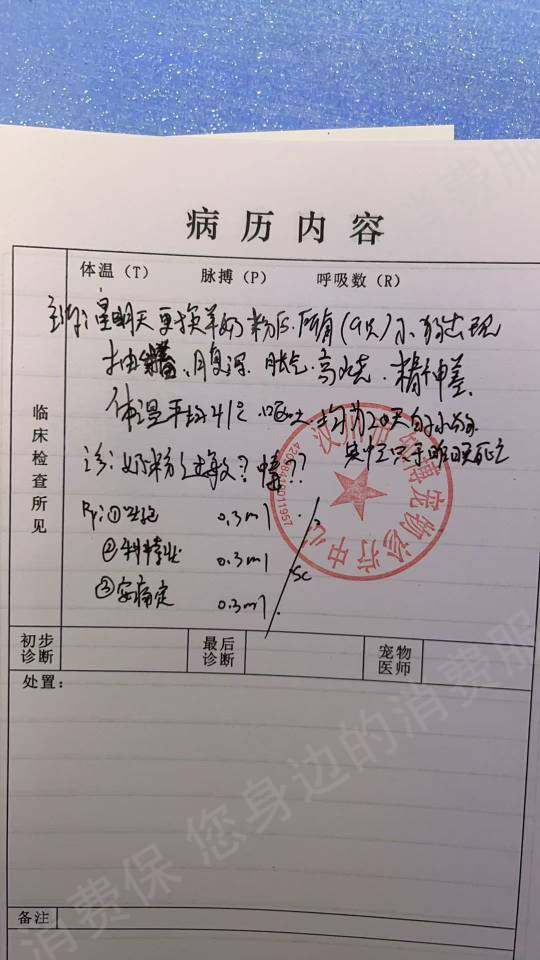 病历内容
体温（T） 脉搏（P） 呼吸数（R）
天更换羊奶粉后所有(9只)小狗出现
抽搐、腹泻、胀气、高烧、精神差、
体温平均41℃ 呕吐 均为20天的小狗
其中三只于昨日死亡
诊：奶粉过敏？中毒？？
临床检查所见
Rp:① 0.3ml
② 科特壮 0.3ml
③安痛定 0.3ml
sc
宠物诊疗中心
初步诊断
最后诊断
宠物医师
处置：
备注
消费保 您身边的消费服